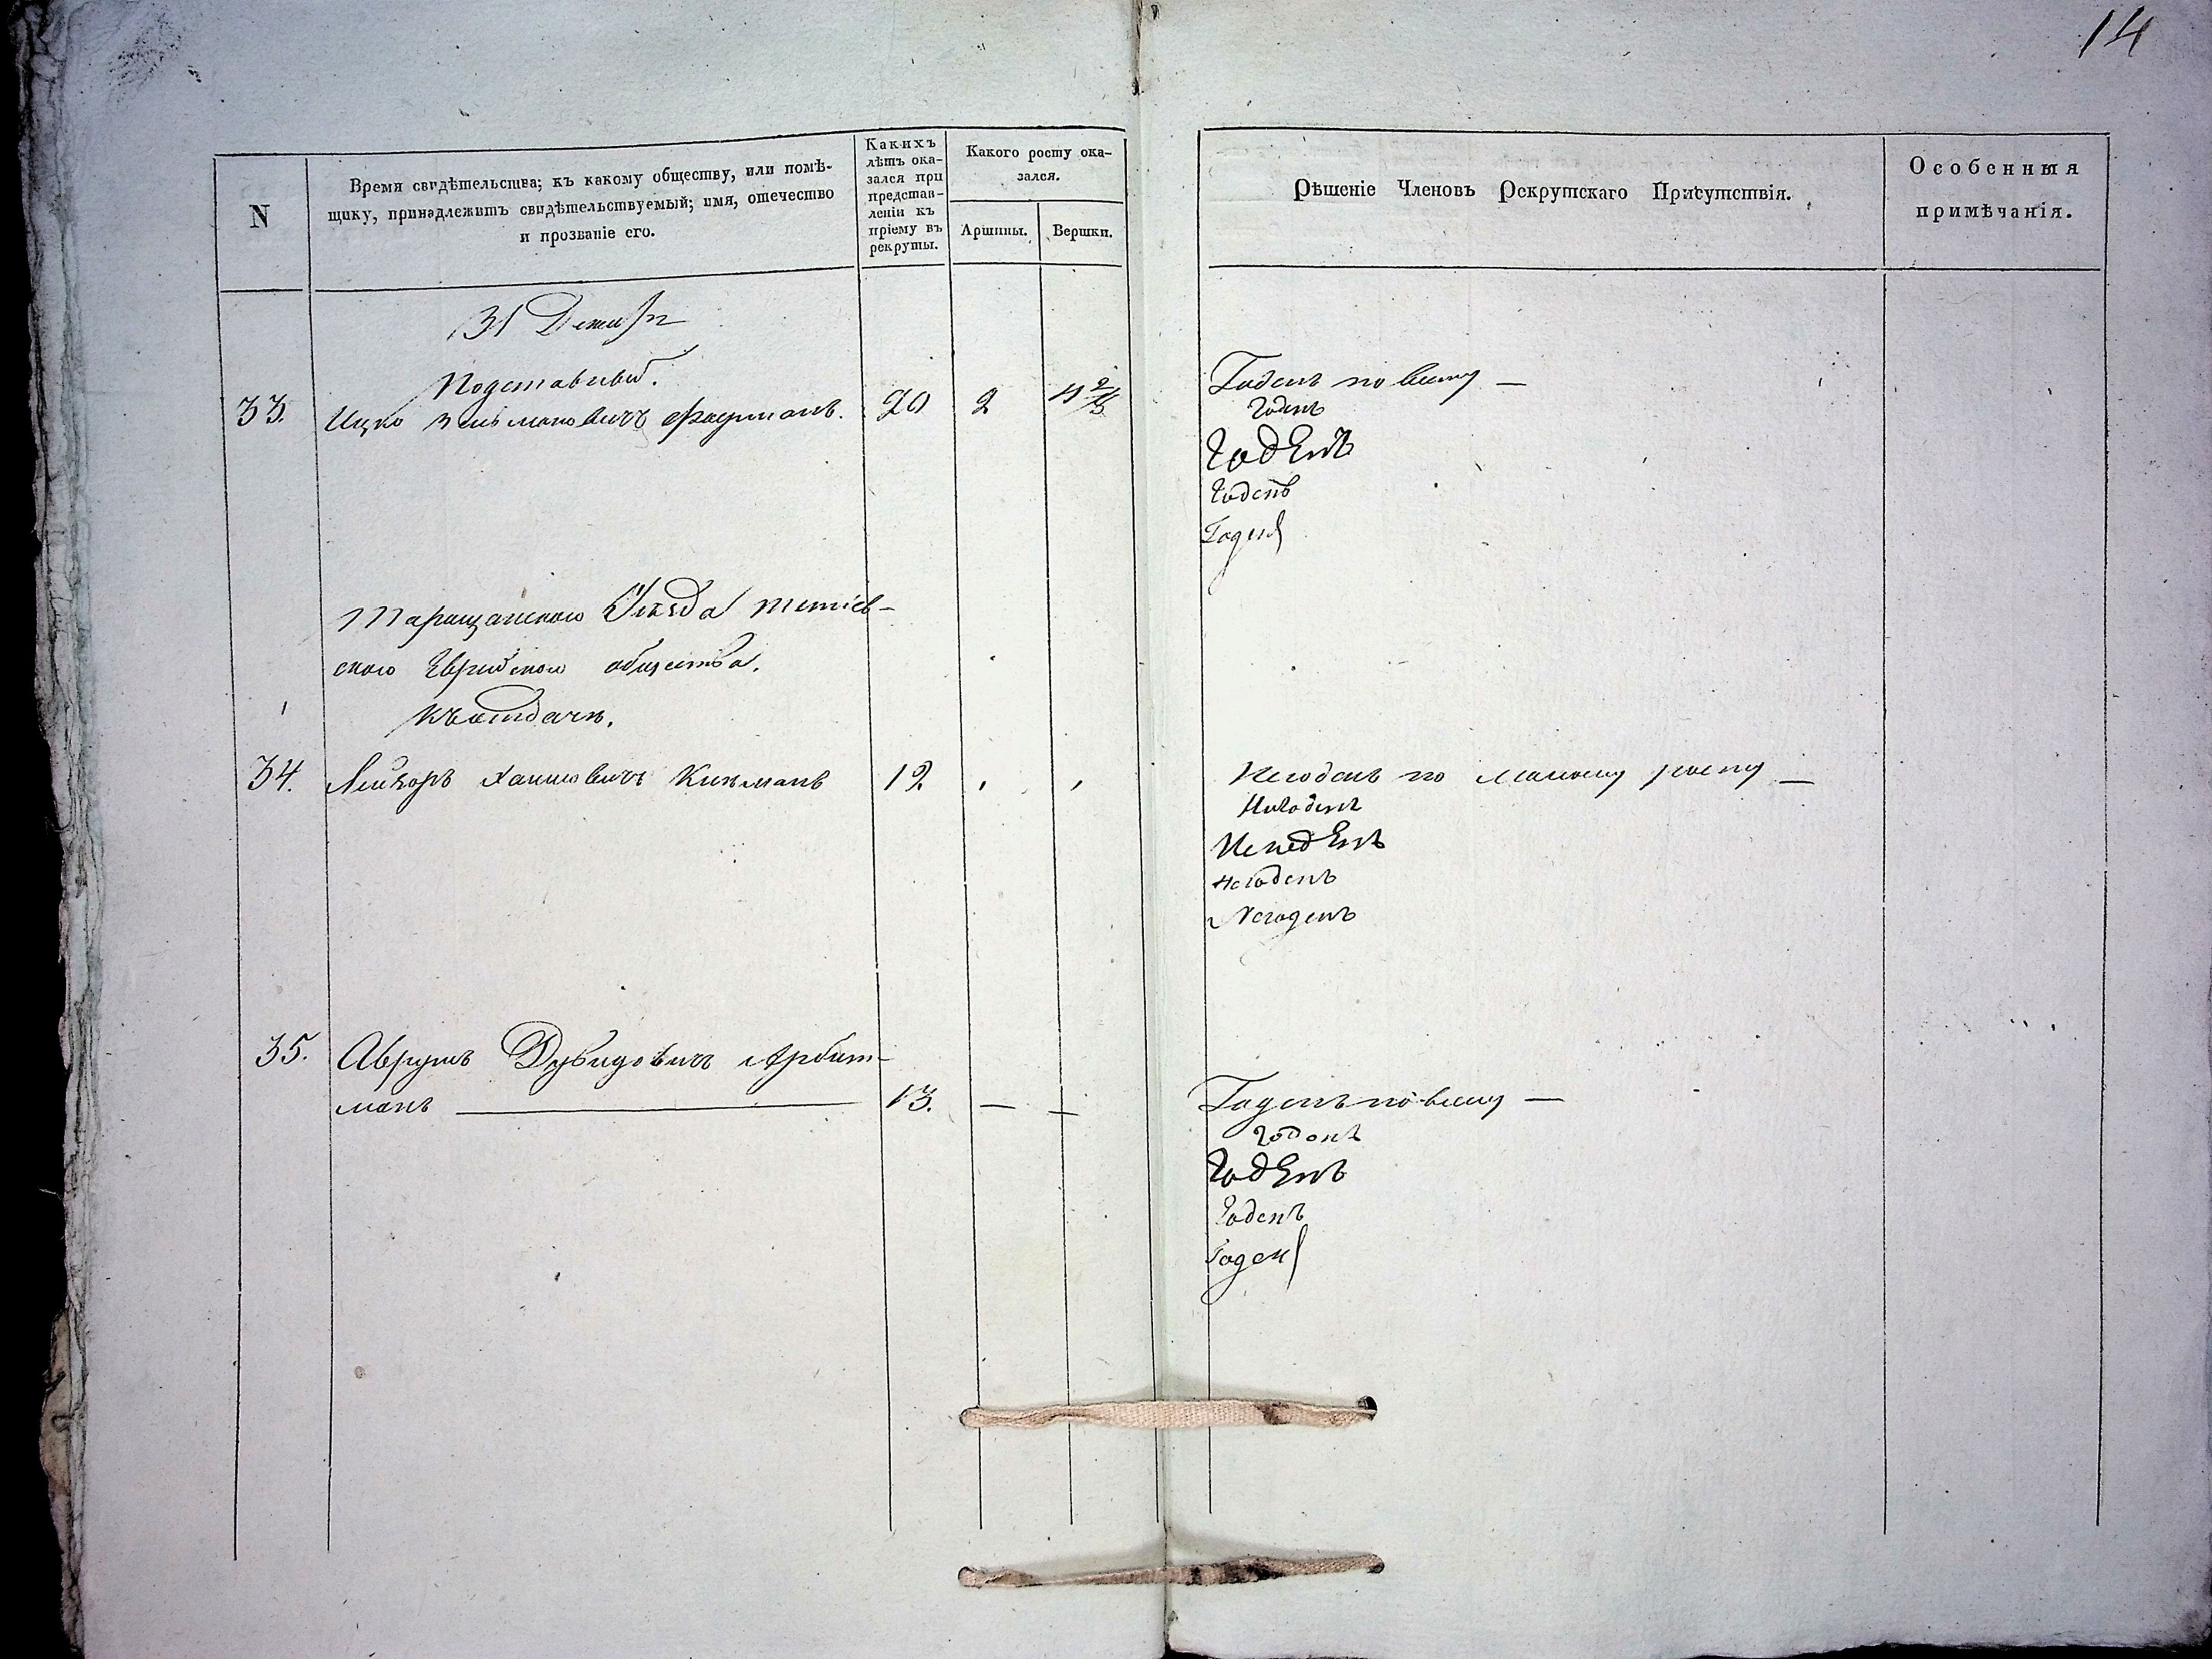 14
N
Время свидѣтельства; къ какому обществу, или помѣ-
щику, принадлежитъ свидѣтельствуемый; имя, отечество
и прозваніе его.
Какихъ
лѣтъ ока-
зался при
представ-
леніи къ
пріему въ
рекруты.
Какого росту ока-
зался.
Аршины.
Вершки.
Рѣшеніе Членовъ Рекрутскаго Присутствія.
Особенныя
примѣчанія.
31
Подставной.
33. Ицко 20 2 Годенъ по всему —
Годенъ
Годенъ
Годенъ
Годенъ
Таращанского Уѣзда Тетіев-
ского Еврейского общества.
Къ отдачѣ.
34. Лейзоръ Кижманъ 12 Негоденъ по малому росту —
Негоденъ
Негоденъ
Негоденъ
Негоденъ
35. Аврумъ Дувидовичъ Арбит-
манъ — 13. — — Годенъ по всему —
Годенъ
Годенъ
Годенъ
Годенъ